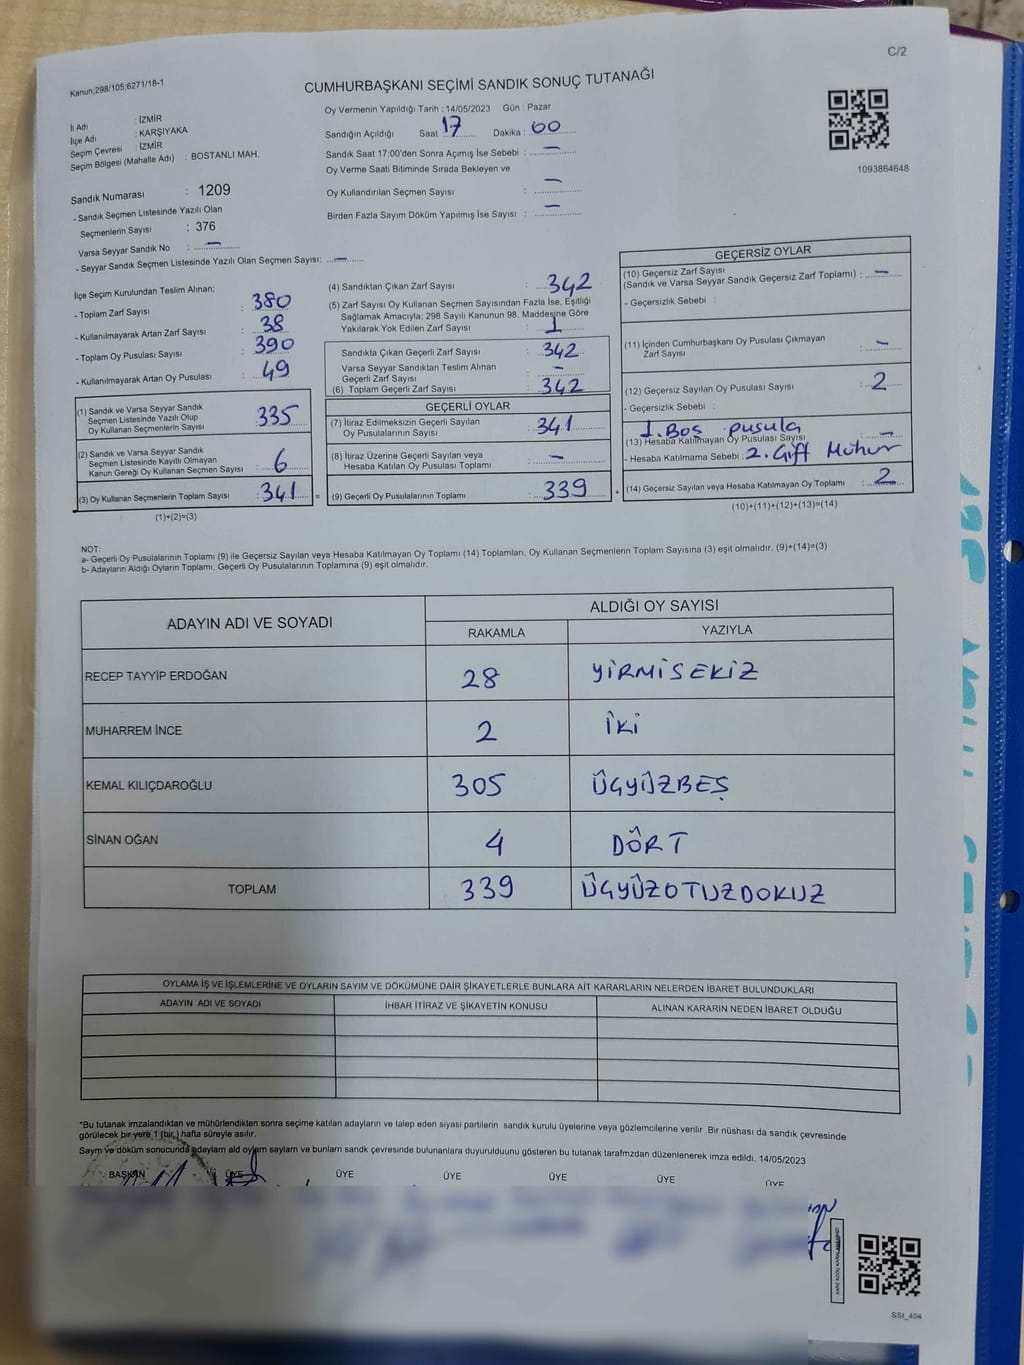 C/2
Kanun;298/105;6271/18-1
CUMHURBAŞKANI SEÇİMİ SANDIK SONUÇ TUTANAĞI
1093864648
İl Adı : İZMİR
İlçe Adı : KARŞIYAKA
Seçim Çevresi : İZMİR
Seçim Bölgesi (Mahalle Adı) : BOSTANLI MAH.
Sandık Numarası : 1209
- Sandık Seçmen Listesinde Yazılı Olan
Seçmenlerin Sayısı : 376
Varsa Seyyar Sandık No : —
- Seyyar Sandık Seçmen Listesinde Yazılı Olan Seçmen Sayısı: —
Oy Vermenin Yapıldığı Tarih : 14/05/2023 Gün : Pazar
Sandığın Açıldığı Saat 17 Dakika : 00
Sandık Saat 17:00'den Sonra Açımış İse Sebebi : —
Oy Verme Saati Bitiminde Sırada Bekleyen ve
Oy Kullandırılan Seçmen Sayısı : —
Birden Fazla Sayım Döküm Yapılmış İse Sayısı : —
İlçe Seçim Kurulundan Teslim Alınan;
- Toplam Zarf Sayısı : 380
- Kullanılmayarak Artan Zarf Sayısı : 38
- Toplam Oy Pusulası Sayısı : 390
- Kullanılmayarak Artan Oy Pusulası : 49
(1) Sandık ve Varsa Seyyar Sandık
Seçmen Listesinde Yazılı Olup
Oy Kullanan Seçmenlerin Sayısı : 335
(2) Sandık ve Varsa Seyyar Sandık
Seçmen Listesinde Kayıtlı Olmayan
Kanun Gereği Oy Kullanan Seçmen Sayısı : 6
(3) Oy Kullanan Seçmenlerin Toplam Sayısı : 341 =
(1)+(2)=(3)
(4) Sandıktan Çıkan Zarf Sayısı : 342
(5) Zarf Sayısı Oy Kullanan Seçmen Sayısından Fazla İse, Eşitliği
Sağlamak Amacıyla; 298 Sayılı Kanunun 98. Maddesine Göre
Yakılarak Yok Edilen Zarf Sayısı : 1
Sandıkta Çıkan Geçerli Zarf Sayısı : 342
Varsa Seyyar Sandıktan Teslim Alınan
Geçerli Zarf Sayısı : —
(6) Toplam Geçerli Zarf Sayısı : 342
GEÇERLİ OYLAR
(7) İtiraz Edilmeksizin Geçerli Sayılan
Oy Pusulalarının Sayısı : 341
(8) İtiraz Üzerine Geçerli Sayılan veya
Hesaba Katılan Oy Pusulası Toplamı : —
(9) Geçerli Oy Pusulalarının Toplamı : 339 +
GEÇERSİZ OYLAR
(10) Geçersiz Zarf Sayısı
(Sandık ve Varsa Seyyar Sandık Geçersiz Zarf Toplamı) : —
- Geçersizlik Sebebi :
(11) İçinden Cumhurbaşkanı Oy Pusulası Çıkmayan
Zarf Sayısı : —
(12) Geçersiz Sayılan Oy Pusulası Sayısı : 2
- Geçersizlik Sebebi :
1. Boş pusula
(13) Hesaba Katılmayan Oy Pusulası Sayısı : —
- Hesaba Katılmama Sebebi : 2. Çift Mühür
(14) Geçersiz Sayılan veya Hesaba Katılmayan Oy Toplamı : 2
(10)+(11)+(12)+(13)=(14)
NOT:
a- Geçerli Oy Pusulalarının Toplamı (9) ile Geçersiz Sayılan veya Hesaba Katılmayan Oy Toplamı (14) Toplamları, Oy Kullanan Seçmenlerin Toplam Sayısına (3) eşit olmalıdır. (9)+(14)=(3)
b- Adayların Aldığı Oyların Toplamı, Geçerli Oy Pusulalarının Toplamına (9) eşit olmalıdır.
ADAYIN ADI VE SOYADI ALDIĞI OY SAYISI
RAKAMLA YAZIYLA
RECEP TAYYİP ERDOĞAN 28 YİRMİSEKİZ
MUHARREM İNCE 2 İKİ
KEMAL KILIÇDAROĞLU 305 ÜÇYÜZBEŞ
SİNAN OĞAN 4 DÖRT
TOPLAM 339 ÜÇYÜZOTUZDOKUZ
OYLAMA İŞ VE İŞLEMLERİNE VE OYLARIN SAYIM VE DÖKÜMÜNE DAİR ŞİKAYETLERLE BUNLARA AİT KARARLARIN NELERDEN İBARET BULUNDUKLARI
ADAYIN ADI VE SOYADI İHBAR İTİRAZ VE ŞİKAYETİN KONUSU ALINAN KARARIN NEDEN İBARET OLDUĞU
*Bu tutanak imzalandıktan ve mühürlendikten sonra seçime katılan adayların ve talep eden siyasi partilerin sandık kurulu üyelerine veya gözlemcilerine verilir .Bir nüshası da sandık çevresinde
görülecek bir yere 1 (bir) hafta süreyle asılır.
Sayım ve döküm sonucunda adayların ald oyların sayıları ve bunların sandk çevresinde bulunanlara duyurulduunu gösteren bu tutanak tarafmzdan düzenlenerek imza edildi. 14/05/2023
BAŞKAN ÜYE ÜYE ÜYE ÜYE ÜYE ÜYE
SSI_404